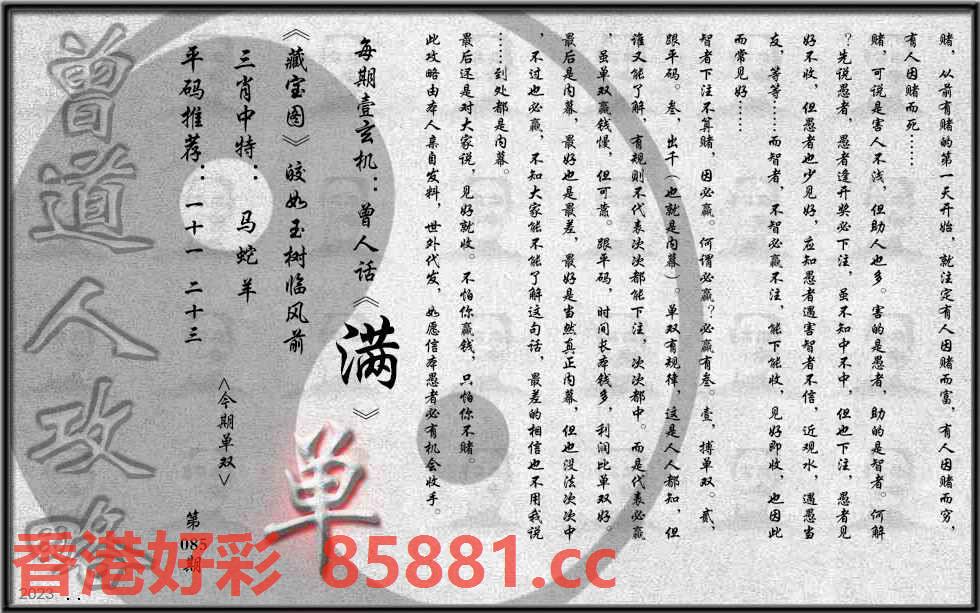 赌，从前有赌的第一天开始，就注定有人因赌而富，有人因赌而穷，
有人因赌而死……
赌，可说是害人不浅，但助人也多。害的是愚者，助的是智者。何解
？先说愚者，愚者逢开奖必下注，虽不知中不中，但也下注，愚者见
好不收，但愚者也少见好，应知愚者遇害智者不信，近观水，遇愚当
友，等等……而智者，不智必赢不注，能下能收，见好即收，也因此
而常见好……
智者下注不算赌，因必赢。何谓必赢？必赢有叁。壹，搏单双。贰，
跟平码。叁，出千（也就是内幕）。单双有规律，这是人人都知，但
谁又能了解，有规则不代表次次都能下注，次次都中。而是代表必赢
，虽单双赢钱慢，但可靠。跟平码，时间长本钱多，利润比单双好。
最后是内幕，最好也是最差，最好是当然真正内幕，但也没法次次中
，不过也必赢，不知大家能不能了解这句话，最差的相信也不用我说
……到处都是内幕。
最后还是对大家说，见好就收。不怕你赢钱，只怕你不赌。
此攻略由本人亲自发料，世外代发，如愿信本愚者必有机会收手。
每期壹玄机：曾人话《满》
《藏宝图》皎如玉树临风前
三肖中特：马蛇羊
平码推荐：一十一 二十三
<今期单双>
单
第085期
曾道人攻略
香港好彩 85881.cc
2023